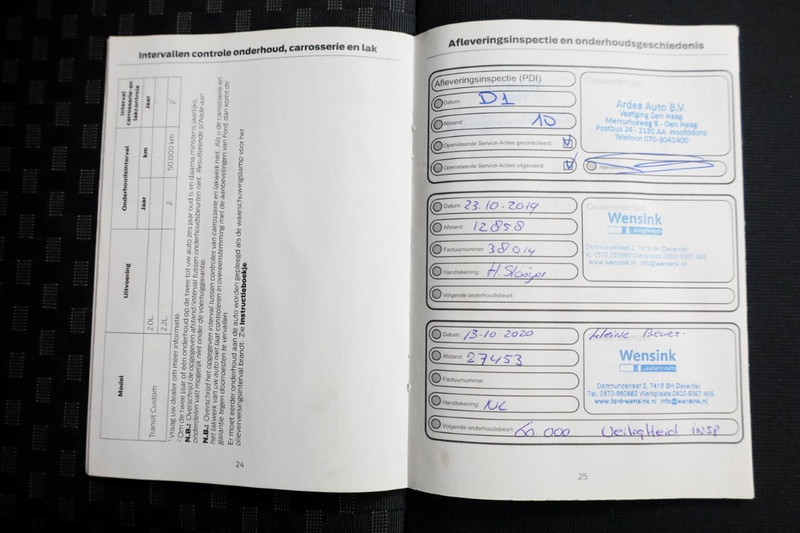 Intervallen controle onderhoud, carrosserie en lak
Model
Uitvoering
Onderhoudsinterval
Interval carrosserie- en lakcontrole
Jaar
km
Jaar
Transit Custom
2.0L
2.2L
2
50.000 km
2
Vraag uw dealer om meer informatie.
Om de twee jaar of één onderhoud op de twee tot uw auto zes jaar oud is en daarna minstens jaarlijks.
N.B.: Overschrijd de opgegeven afstand/interval tussen onderhoudsbeurten niet. Resulterende schade aan
onderdelen valt mogelijk niet onder de voertuiggarantie.
N.B.: Overschrijd het opgegeven interval tussen controles van carrosserie en lakwerk niet. Als u de carrosserie en
het lakwerk van uw auto niet laat controleren in overeenstemming met de aanbevelingen van Ford, dan komt de
garantie tegen doorroesten te vervallen.
Er moet eerder onderhoud aan de auto worden gepleegd als de waarschuwingslamp voor het
olieverversingsinterval brandt. Zie Instructieboekje
24
Afleveringsinspectie en onderhoudsgeschiedenis
Afleveringsinspectie (PDI)
Datum: D1
Afstand: 10
Openstaande Service-Acties gecontroleerd:
Openstaande Service-Acties uitgevoerd:
Dealerstempel
Ardea Auto B.V.
Vestiging Den Haag
Mercuriusweg 9 - Den Haag
Postbus 24 - 2130 AA Hoofddorp
Telefoon 070-3042400
Datum: 23-10-2019
Afstand: 12858
Factuurnummer: 38014
Handtekening:
Volgende onderhoudsbeurt
Dealerstempel
Wensink
Dortmundstraat 2, 7418 BH Deventer
www.wensink.nl
Datum: 13-10-2020
Afstand: 27453
Factuurnummer:
Handtekening:
Volgende onderhoudsbeurt: 60.000 Veiligheid INSP
kleine Beurt.
Wensink
Dortmundstraat 2, 7418 BH Deventer
Tel. 0570-860880 Werkplaats 0800-9367 465
www.ford-wensink.nl info@wensink.nl
25